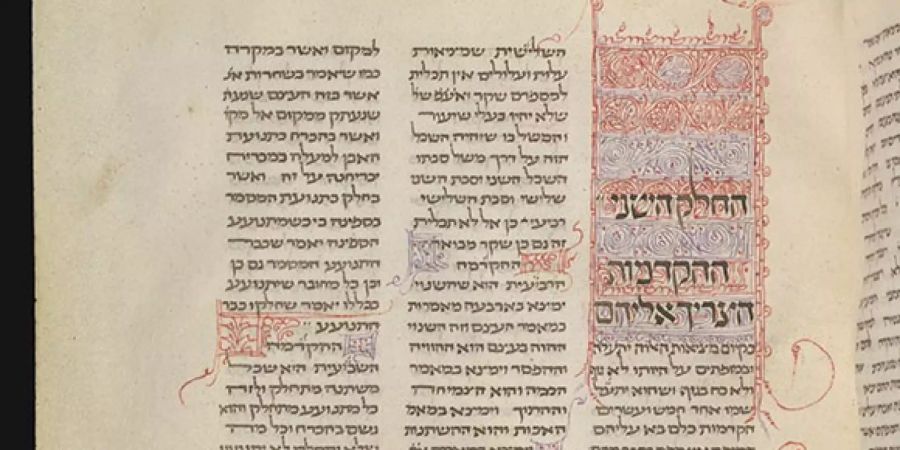 החלק השני
ההקדמות
הצריך אליהם
בקיום מציאות האלוה יתעלה
ובמופתים על היותו לא גוף
ולא כח בגוף ושהוא יתעל
שמו אחד חמש ועשרים
הקדמות כלם באו עליהם
השלישית שמציאות
עלות ועלולים אין תכלית
למספרם שקר ואעפ של
שלא יהיו בעלי שיעור
והמשל בו שיהיה השכל
הזה על דרך משל סבתו
השכל השני וסבת השני
שלישי וסבת השלישי
רביעי כן אל לא תכלית
זה גם כן שקר מבואר
ההקדמה
הרביעית הוא שהשנוי
ימצא בארבעה מאמרות
במאמר העצם וזה השנוי
ההוה בעצם הוא ההויה
וההפסד וימצא במאמר
הכמה והוא הצמיחה
וההתוך וימצא במאמ
האיכות והוא ההשתנות
למקום ואשר במקרה
כמו שיאמר בשחרות
אשר בזה הגשם
שנעתק ממקום אל מקו
ואשר בהכרח כתנועת
האבן למעלה במכריח
יכריחה על זה ואשר
בחלק כתנועת המסמר
בספינה כי כשתתנועע
הספינה יאמר שכבר
התנועע המסמר גם כן
וכן כל מחובר שיתנועע
בכללו יאמר שחלקו כבר
התנועע
ההקדמה
השביעית היא שכל
משתנה מתחלק ולזה
כל מתנועע מתחלק והוא
גשם בהכרח וכל מה